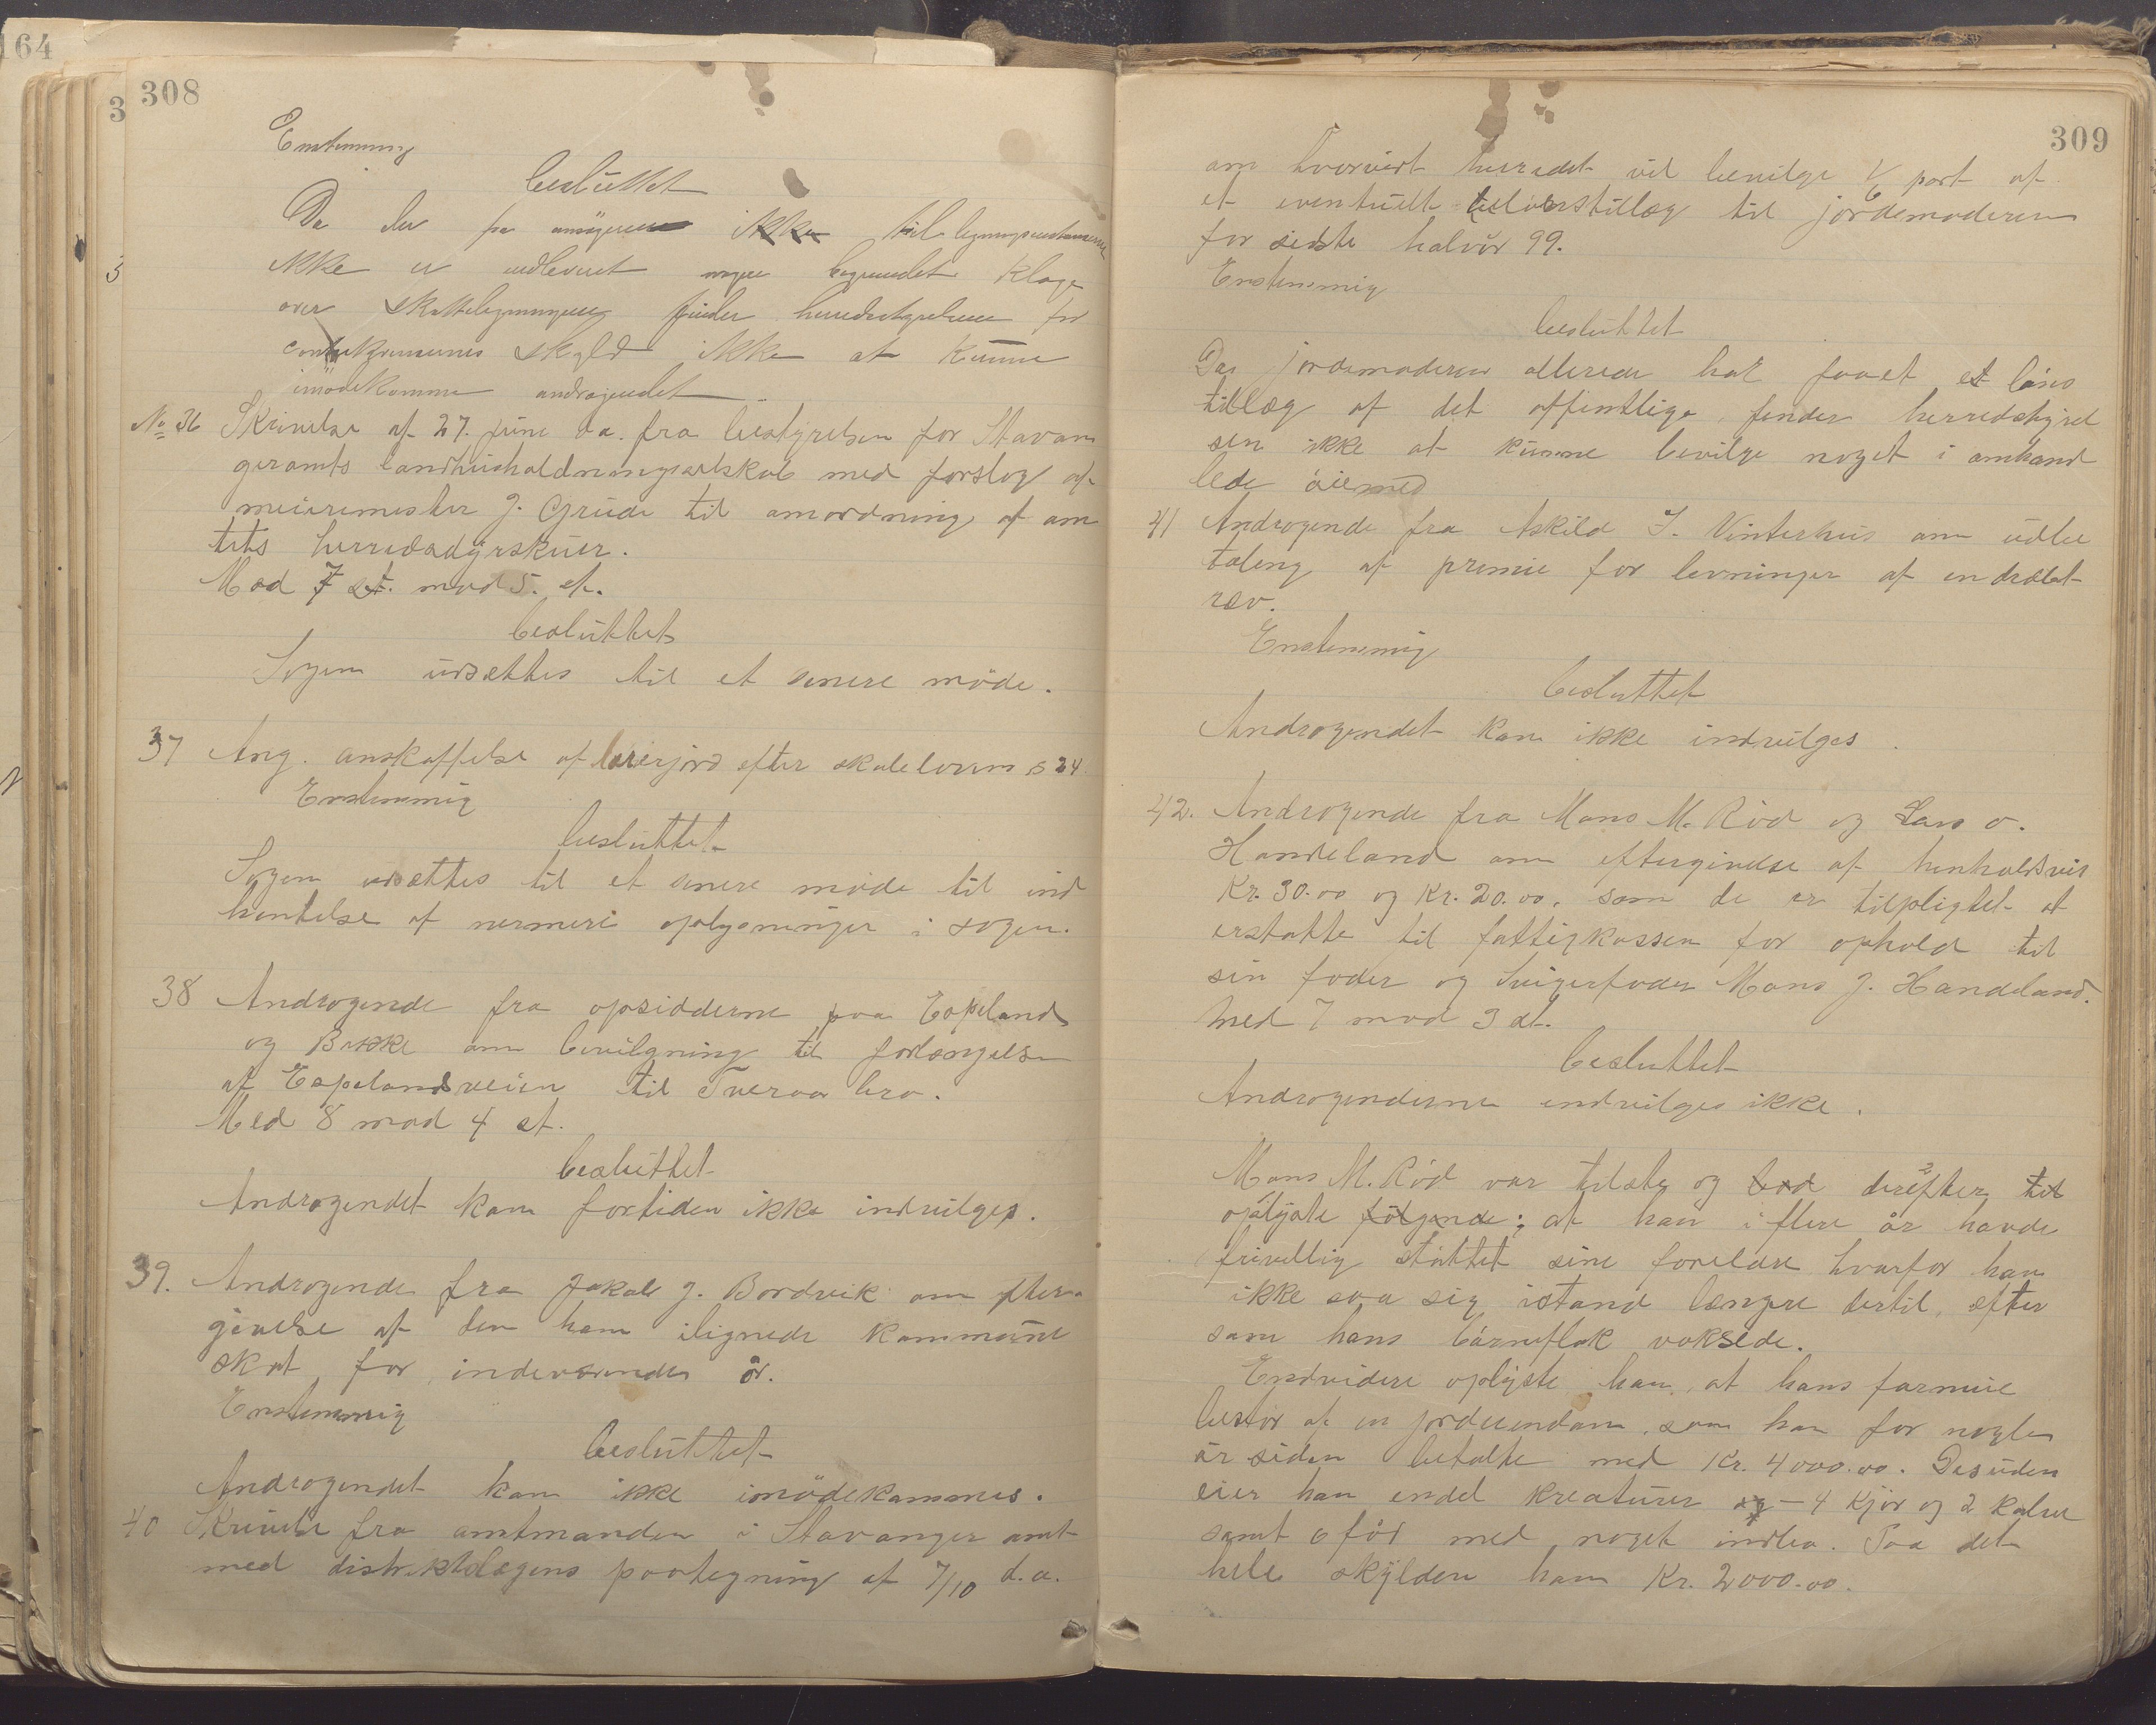 164
3
308
Enstemmig
besluttet
Da der fra ansøgeren ikke til ligningskommissionen
ikke er indleveret nogen begrundet klage
over skatteligningen finder herredsstyrelsen for
consekvensernes skyld ikke at kunne
imødekomme andragendet
No 36 Skrivelse af 27. june d.a. fra bestyrelsen for Stavan
geramts landhusholdningselskab med forslag af
meierimester J. Grude til anordning af am
tets herredsdyrskuer.
Med 7 st. mod 5. st.
besluttet
Sagen udsættes til et senere møde.
37 Ang. anskaffelse af lærerjord efter skoleloven § 24
Enstemmig
besluttet
Sagen udsættes til et senere møde til ind
hentelse af nermere oplysninger i sagen.
38 Andragende fra opsidderne paa Espeland
og Brekke om bevilgning til forlængelse
af Espelandsveien til Tveraa bro.
Med 8 mod 4 st.
besluttet
Andragendet kan fortiden ikke indvilges.
39. Andragende fra Jakob J. Bordvik om efter-
givelse af den ham ilignede kommune
skat for indeværende år.
Enstemmig
besluttet
Andragendet kan ikke imødekommes.
40 Skrivelse fra amtmanden i Stavanger amt
med distriktslægens paategning af 7/10 d.a.
309
om hvorvidt herredet vil bevilge 1/6 part af
et eventuelt lønstillæg til jordemoderen
for sidste halvår 99.
Enstemmig
besluttet
Da jordemoderen allerede har faaet et løns
tillæg af det offentlige, finder herredstyrel
sen ikke at kunne bevilge noget i omhand
lede øiemed
41 Andragende fra Askild I. Vinterhus om udbe
taling af premie for levninger af en dræbt
ræv.
Enstemmig
besluttet
Andragendet kan ikke indvilges.
42. Andragende fra Mons M. Rød og Lars O.
Handeland om eftergivelse af henholdsvis
Kr. 30.00 og Kr. 20.00, som de er tilpligtet at
erstatte til fattigkassen for ophold til
sin fader og Svigerfader Mons J. Handeland.
Med 7 mod 3 st.
besluttet
Andragenderne indvilges ikke.
Mons M. Rød var tilstede og bad derefter til
oplyste følgende; at han i flere år havde
frivillig støttet sine foreldre hvorfor han
ikke saa sig istand længere dertil, efter
som hans børneflok voksede.
Endvidere oplyste han, at hans formue
består af en jordeiendom, som han for nogle
år siden betalte med Kr. 4000.00. Desuden
eier han endel kreaturer og - 4 kjør og 2 kalve
samt 6 får med noget indbo. Paa det
hele skylder han Kr. 2000.00.